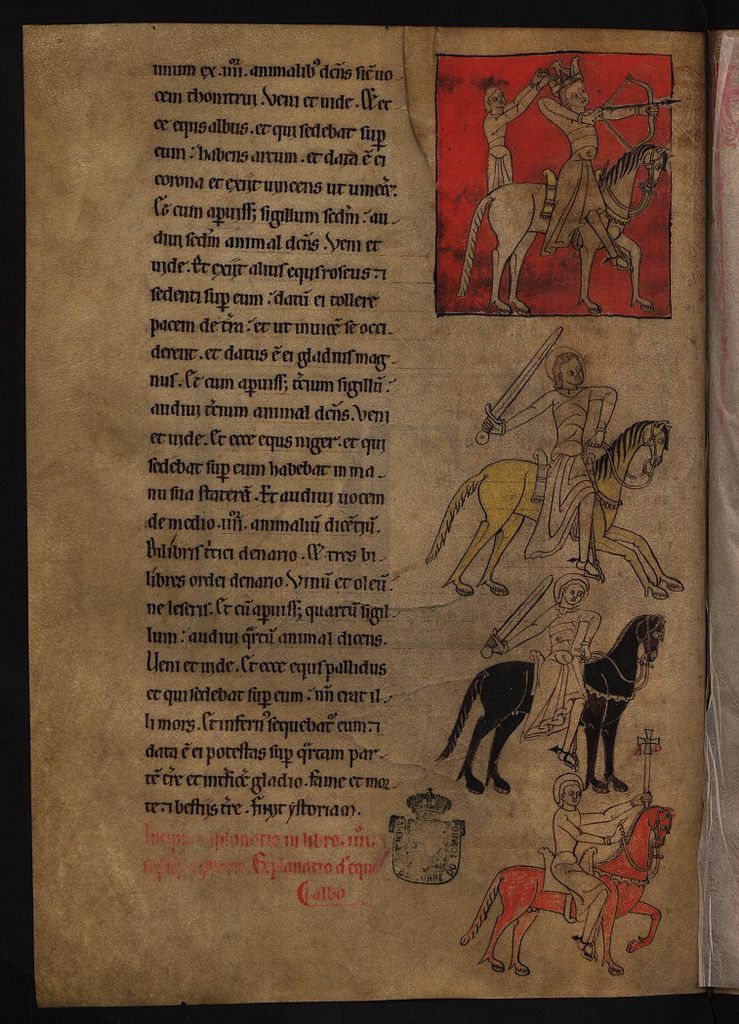 unum ex .iiii. animalib' dcñs sic̃ uo
cem thonitrui .Veni et uide. Et ec
ce equs albus. et qui sedebat sup
eum: habens arcum. et data ẽ ei
corona et exijt uincens ut uinc̃et.
Et cum apuiss; sigillum scdm̃: au
diui scdm̃ animal dcñs. Veni et
uide. Et exijt alius equs roseus: 7
sedenti sup eum: datũ ei tollere
pacem de tr̃a: et ut inuicẽ se occi
derent. et datus ẽ ei gladius mag
nus. Et cum apuiss; t̃cium sigillũ:
audiui t̃cium animal dcñs. Veni
et uide. Et ecce equs niger. et qui
sedebat sup eum habebat in ma
nu sua staterã. Et audiui uocem
de medio .iiii. animaliũ dicẽtiũ.
Bilibris t̃tici denario. Et tres bi
libres ordei denario. Vinũ et oleũ
ne leseris. Et cũ apuiss; quartũ sigil
lum: audiui qr̃tũ animal dicens.
Veni et uide. Et ecce equs pallidus
et qui sedebat sup eum: nm̃ erat il
li mors. Et infern' sequebat' eum: 7
data ẽ ei potestas sup qr̃tam par
tẽ tr̃e et int̃ficẽ gladio. fame et mor
te 7 bestijs tr̃e. Finit ystoriam.
Incipit explanatio in libro .iiii.
Explanatio d' equo
albo
TORRE DO TOMBO